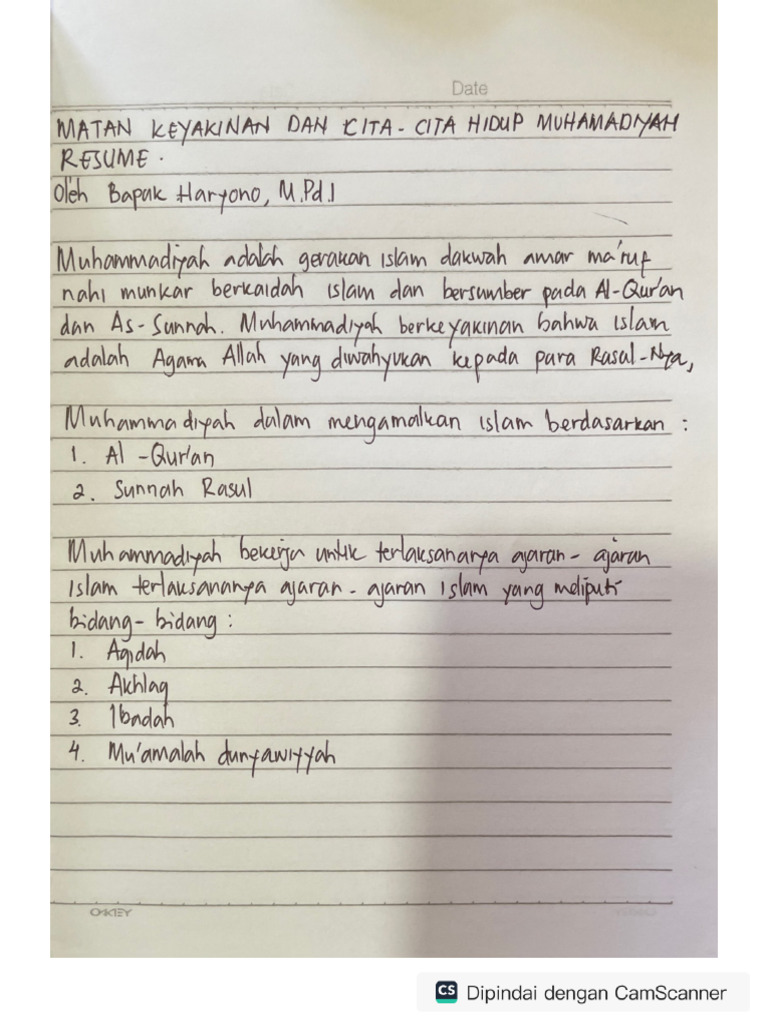 Date
MATAN KEYAKINAN DAN CITA-CITA HIDUP MUHAMADIYAH
RESUME.
Oleh Bapak Haryono, M.Pd.I
Muhammadiyah adalah gerakan islam dakwah amar ma'ruf
nahi munkar berkaidah islam dan bersumber pada Al-Qur'an
dan As-Sunnah. Muhammadiyah berkeyakinan bahwa islam
adalah Agama Allah yang diwahyukan kepada para Rasul-Nya,
Muhammadiyah dalam mengamalkan islam berdasarkan :
1. Al-Qur'an
2. Sunnah Rasul
Muhammadiyah bekerja untuk terlaksananya ajaran-ajaran
Islam terlaksananya ajaran-ajaran Islam yang meliputi
bidang-bidang :
1. Aqidah
2. Akhlaq
3. Ibadah
4. Mu'amalah dunyawiyyah
OKEY
CS Dipindai dengan CamScanner